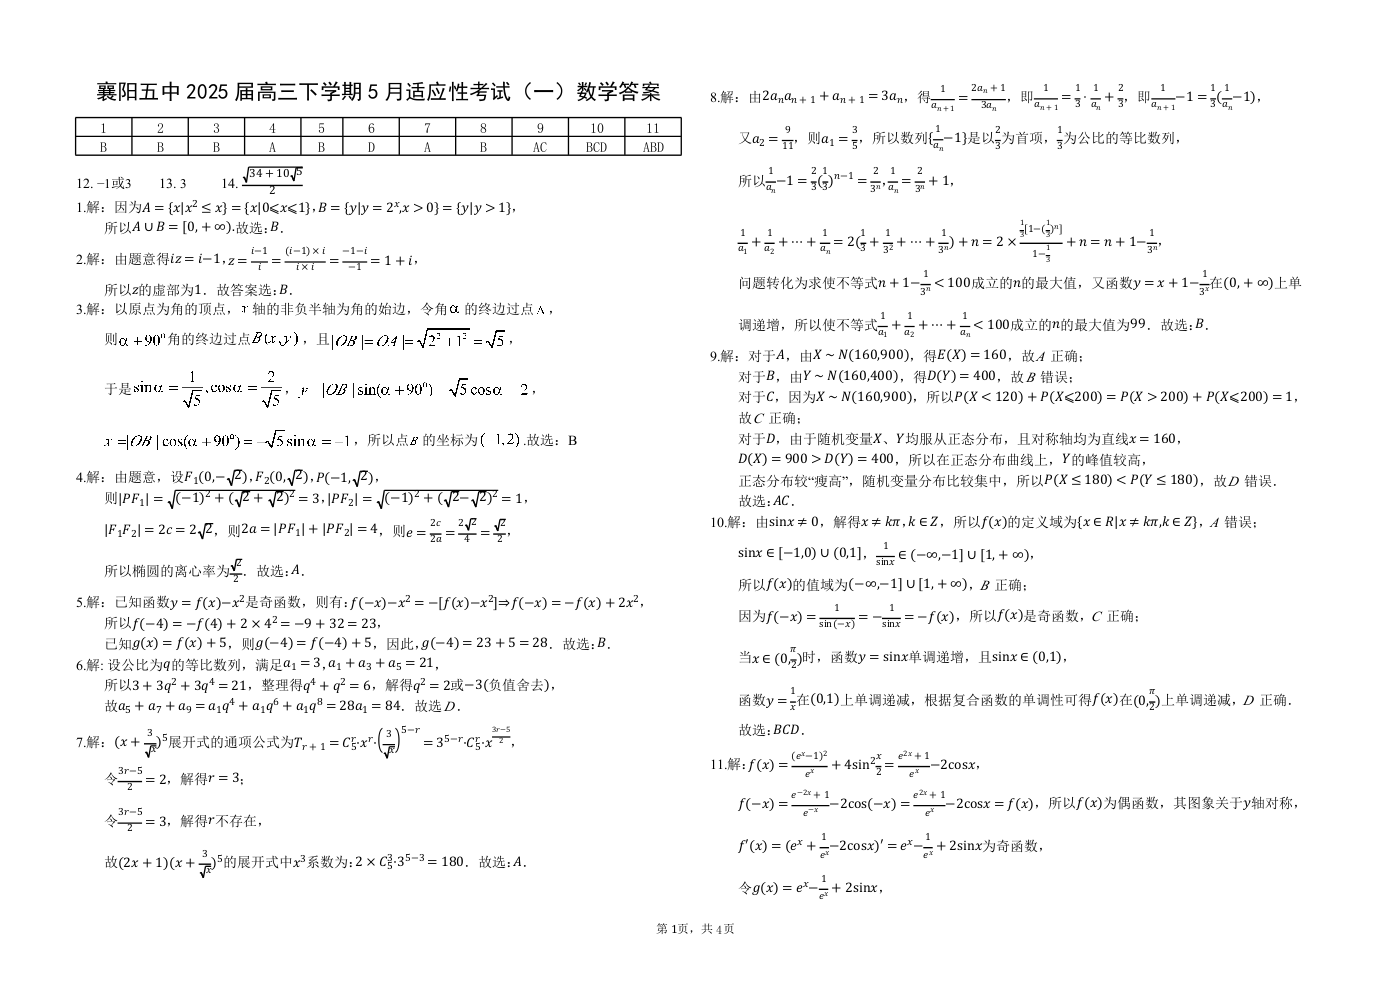 襄阳五中 2025 届高三下学期 5 月适应性考试（一）数学答案
1 2 3 4 5 6 7 8 9 10 11
B B B A B D A B AC BCD ABD
12. −1或3 13. 3 14. √(34+10√5)/2
1.解：因为A = {x|x² ≤ x} = {x|0⩽x⩽1}，B = {y|y = 2ˣ,x > 0} = {y|y > 1}，
所以A ∪ B = [0, + ∞).故选：B．
2.解：由题意得iz = i−1，z = (i−1)/i = ((i−1) × i)/(i × i) = (−1−i)/(−1) = 1 + i，
所以z的虚部为1．故答案选：B．
3.解：以原点为角的顶点，x 轴的非负半轴为角的始边，令角α 的终边过点A，
则α+90°角的终边过点B(x,y)，且|OB|=|OA|=√(2²+1²)=√5，
于是sinα = 1/√5,cosα = 2/√5，y |OB|sin(α+90°) √5cosα 2，
x =|OB|cos(α+90°) = −√5sinα = −1，所以点B 的坐标为( 1,2).故选：B
4.解：由题意，设F₁(0,−√2)，F₂(0,√2)，P(−1,√2)，
则|PF₁| = √((−1)² + (√2 + √2)²) = 3，|PF₂| = √((−1)² + (√2−√2)²) = 1，
|F₁F₂| = 2c = 2√2，则2a = |PF₁| + |PF₂| = 4，则e = 2c/2a = 2√2/4 = √2/2，
所以椭圆的离心率为√2/2．故选：A．
5.解：已知函数y = f(x)−x²是奇函数，则有：f(−x)−x² = −[f(x)−x²]⇒f(−x) = −f(x) + 2x²，
所以f(−4) = −f(4) + 2 × 4² = −9 + 32 = 23，
已知g(x) = f(x) + 5，则g(−4) = f(−4) + 5，因此，g(−4) = 23 + 5 = 28．故选：B．
6.解: 设公比为q的等比数列，满足a₁ = 3，a₁ + a₃ + a₅ = 21，
所以3 + 3q² + 3q⁴ = 21，整理得q⁴ + q² = 6，解得q² = 2或−3(负值舍去)，
故a₅ + a₇ + a₉ = a₁q⁴ + a₁q⁶ + a₁q⁸ = 28a₁ = 84．故选D．
7.解：(x + 3/√x)⁵展开式的通项公式为Tᵣ₊₁ = C₅ʳ·xʳ·(3/√x)⁵⁻ʳ = 3⁵⁻ʳ·C₅ʳ·x^((3r−5)/2)，
令(3r−5)/2 = 2，解得r = 3；
令(3r−5)/2 = 3，解得r不存在，
故(2x + 1)(x + 3/√x)⁵的展开式中x³系数为：2 × C₅³·3⁵⁻³ = 180．故选：A．
8.解：由2aₙaₙ₊₁ + aₙ₊₁ = 3aₙ，得1/aₙ₊₁ = (2aₙ + 1)/3aₙ，即1/aₙ₊₁ = 1/3 · 1/aₙ + 2/3，即1/aₙ₊₁ −1 = 1/3(1/aₙ −1)，
又a₂ = 9/11，则a₁ = 3/5，所以数列{1/aₙ −1}是以2/3为首项，1/3为公比的等比数列，
所以1/aₙ −1 = 2/3(1/3)ⁿ⁻¹ = 2/3ⁿ，1/aₙ = 2/3ⁿ + 1，
1/a₁ + 1/a₂ + ⋯ + 1/aₙ = 2(1/3 + 1/3² + ⋯ + 1/3ⁿ) + n = 2 × (1/3[1−(1/3)ⁿ])/(1−1/3) + n = n + 1−1/3ⁿ，
问题转化为求使不等式n + 1−1/3ⁿ < 100成立的n的最大值，又函数y = x + 1−1/3ˣ在(0, + ∞)上单
调递增，所以使不等式1/a₁ + 1/a₂ + ⋯ + 1/aₙ < 100成立的n的最大值为99．故选：B．
9.解：对于A，由X ~ N(160,900)，得E(X) = 160，故A 正确；
对于B，由Y ~ N(160,400)，得D(Y) = 400，故B 错误；
对于C，因为X ~ N(160,900)，所以P(X < 120) + P(X⩽200) = P(X > 200) + P(X⩽200) = 1，
故C 正确；
对于D，由于随机变量X、Y均服从正态分布，且对称轴均为直线x = 160，
D(X) = 900 > D(Y) = 400，所以在正态分布曲线上，Y的峰值较高，
正态分布较“瘦高”，随机变量分布比较集中，所以P(X ≤ 180) < P(Y ≤ 180)，故D 错误．
故选：AC．
10.解：由sinx ≠ 0，解得x ≠ kπ，k ∈ Z，所以f(x)的定义域为{x ∈ R|x ≠ kπ,k ∈ Z}，A 错误；
sinx ∈ [−1,0) ∪ (0,1]，1/sinx ∈ (−∞,−1] ∪ [1, + ∞)，
所以f(x)的值域为(−∞,−1] ∪ [1, + ∞)，B 正确；
因为f(−x) = 1/sin(−x) = −1/sinx = −f(x)，所以f(x)是奇函数，C 正确；
当x ∈ (0,π/2)时，函数y = sinx单调递增，且sinx ∈ (0,1)，
函数y = 1/x在(0,1)上单调递减，根据复合函数的单调性可得f(x)在(0,π/2)上单调递减，D 正确．
故选：BCD．
11.解：f(x) = (eˣ−1)²/eˣ + 4sin²x/2 = (e²ˣ + 1)/eˣ −2cosx，
f(−x) = (e⁻²ˣ + 1)/e⁻ˣ −2cos(−x) = (e²ˣ + 1)/eˣ −2cosx = f(x)，所以f(x)为偶函数，其图象关于y轴对称，
f′(x) = (eˣ + 1/eˣ −2cosx)′ = eˣ−1/eˣ + 2sinx为奇函数，
令g(x) = eˣ−1/eˣ + 2sinx，
第 1页，共 4页